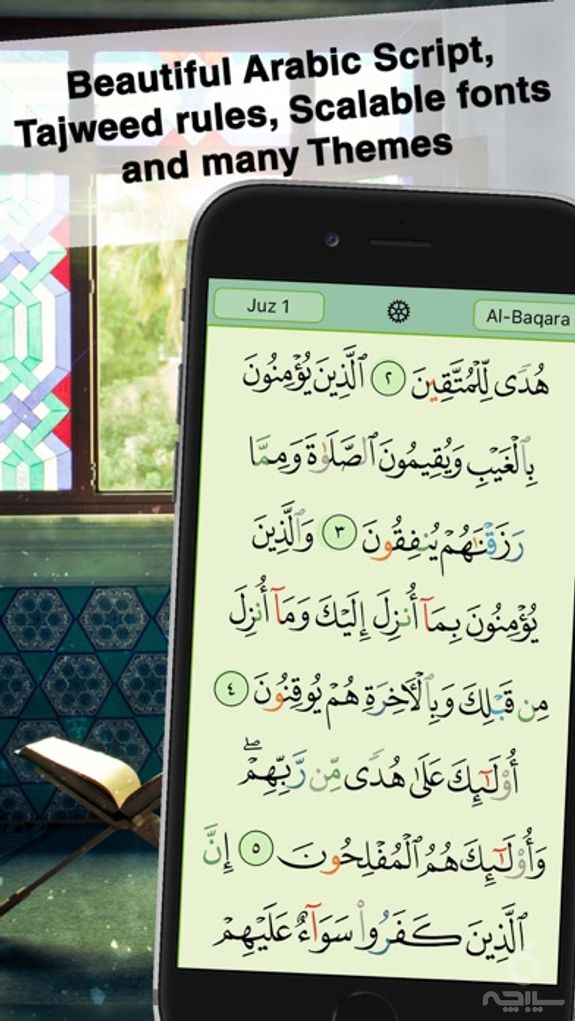 Beautiful Arabic Script,
Tajweed rules, Scalable fonts
and many Themes
Juz 1
Al-Baqara
هُدًى لِّلْمُتَّقِينَ ٢ ٱلَّذِينَ يُؤْمِنُونَ
بِٱلْغَيْبِ وَيُقِيمُونَ ٱلصَّلَوٰةَ وَمِمَّا
رَزَقْنَـٰهُمْ يُنفِقُونَ ٣ وَٱلَّذِينَ
يُؤْمِنُونَ بِمَآ أُنزِلَ إِلَيْكَ وَمَآ أُنزِلَ
مِن قَبْلِكَ وَبِٱلْـَٔاخِرَةِ هُمْ يُوقِنُونَ ٤
أُو۟لَـٰٓئِكَ عَلَىٰ هُدًى مِّن رَّبِّهِمْ ۖ
وَأُو۟لَـٰٓئِكَ هُمُ ٱلْمُفْلِحُونَ ٥ إِنَّ
ٱلَّذِينَ كَفَرُوا۟ سَوَآءٌ عَلَيْهِمْ
سیبچه